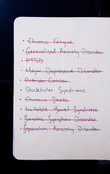 • Chronic Fatigue
• Generalised Anxiety Disorder
• PTSD
• Major Depressive Disorder
• Ovarian Cancer
• Stockholm Syndrome
• Chronic
• Irritable Bowel Syndrome
• Somatic Symptom Disorder
• Separation Anxiety Disorder